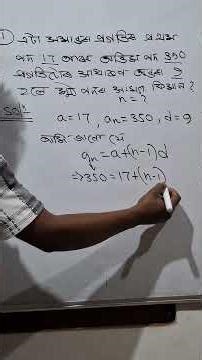 1) এটা সমান্তৰ প্ৰগতিৰ প্ৰথম
পদ 17 আৰু অন্তিম পদ 350
প্ৰগতিটোৰ সাধাৰণ অন্তৰ 9
হলে
পদৰ সংখ্যা কিমান?
n = ?
Sol:
a = 17, an = 350, d = 9
আমি জানো যে
an = a + (n-1)d
⇒ 350 = 17 + (n-1)